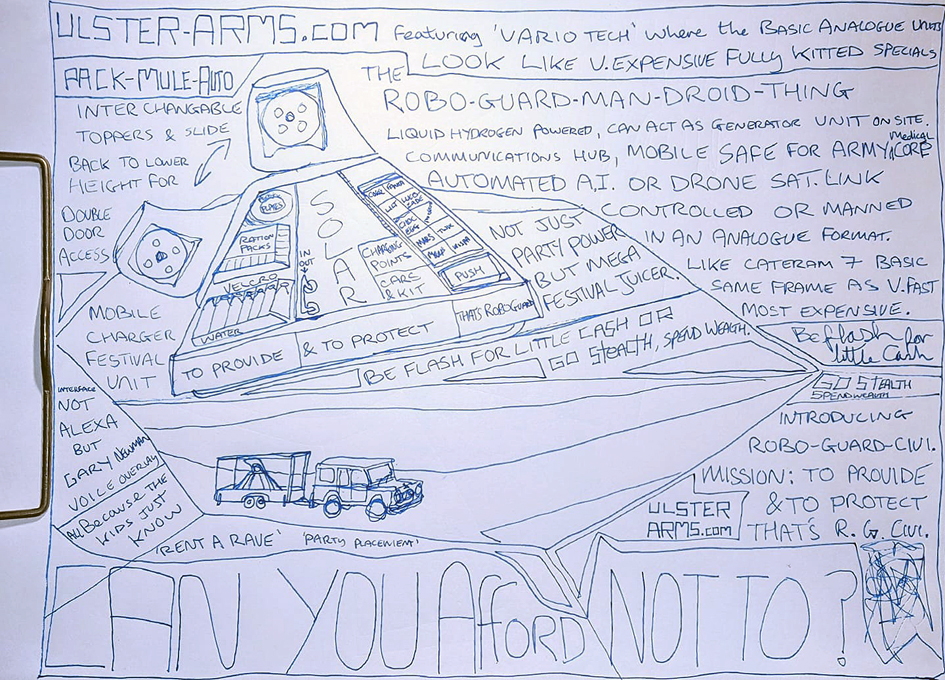 ULSTER-ARMS.COM Featuring 'VARIO TECH' Where the BASIC ANALOGUE UNITS
LOOK LIKE V. EXPENSIVE FULLY KITTED SPECIALS
PACK-MULE-AUTO
INTER CHANGABLE
TOPPERS & SLIDE
BACK TO LOWER
HEIGHT FOR
DOUBLE
DOOR
ACCESS
THE
ROBO-GUARD-MAN-DROID-THING
LIQUID HYDROGEN POWERED, CAN ACT AS GENERATOR UNIT ON SITE.
COMMUNICATIONS HUB, MOBILE SAFE FOR ARMY, Medical CORP
AUTOMATED A.I. OR DRONE SAT. LINK
CONTROLLED OR MANNED
IN AN ANALOGUE FORMAT.
LIKE CATERAM 7 BASIC
SAME FRAME AS V. FAST
MOST EXPENSIVE.
Be flash for
little Cash
GO STEALTH
SPEND WEALTH
NOT JUST
PARTY POWER
BUT MEGA
FESTIVAL JUICER.
RATION
PACKS
VELCRO
WATER
IN OUT
SOLAR
CHARGING
POINTS
CARS
& KIT
PUSH
TO PROVIDE & TO PROTECT THATS ROBOGUARD
BE FLASH FOR LITTLE CASH OR
GO STEALTH, SPEND WEALTH.
MOBILE
CHARGER
FESTIVAL
UNIT
INTERFACE
NOT
ALEXA
BUT
GARY NEWMAN
VOICE OVERLAY
ALL BECAUSE THE
KIDS JUST
KNOW
INTRODUCING
ROBO-GUARD-CIVI.
MISSION: TO PROVIDE
& TO PROTECT
THAT'S R. G. CIVI.
ULSTER
ARMS.COM
'RENT A RAVE' 'PARTY PLACEMENT'
CAN YOU AFFORD NOT TO?